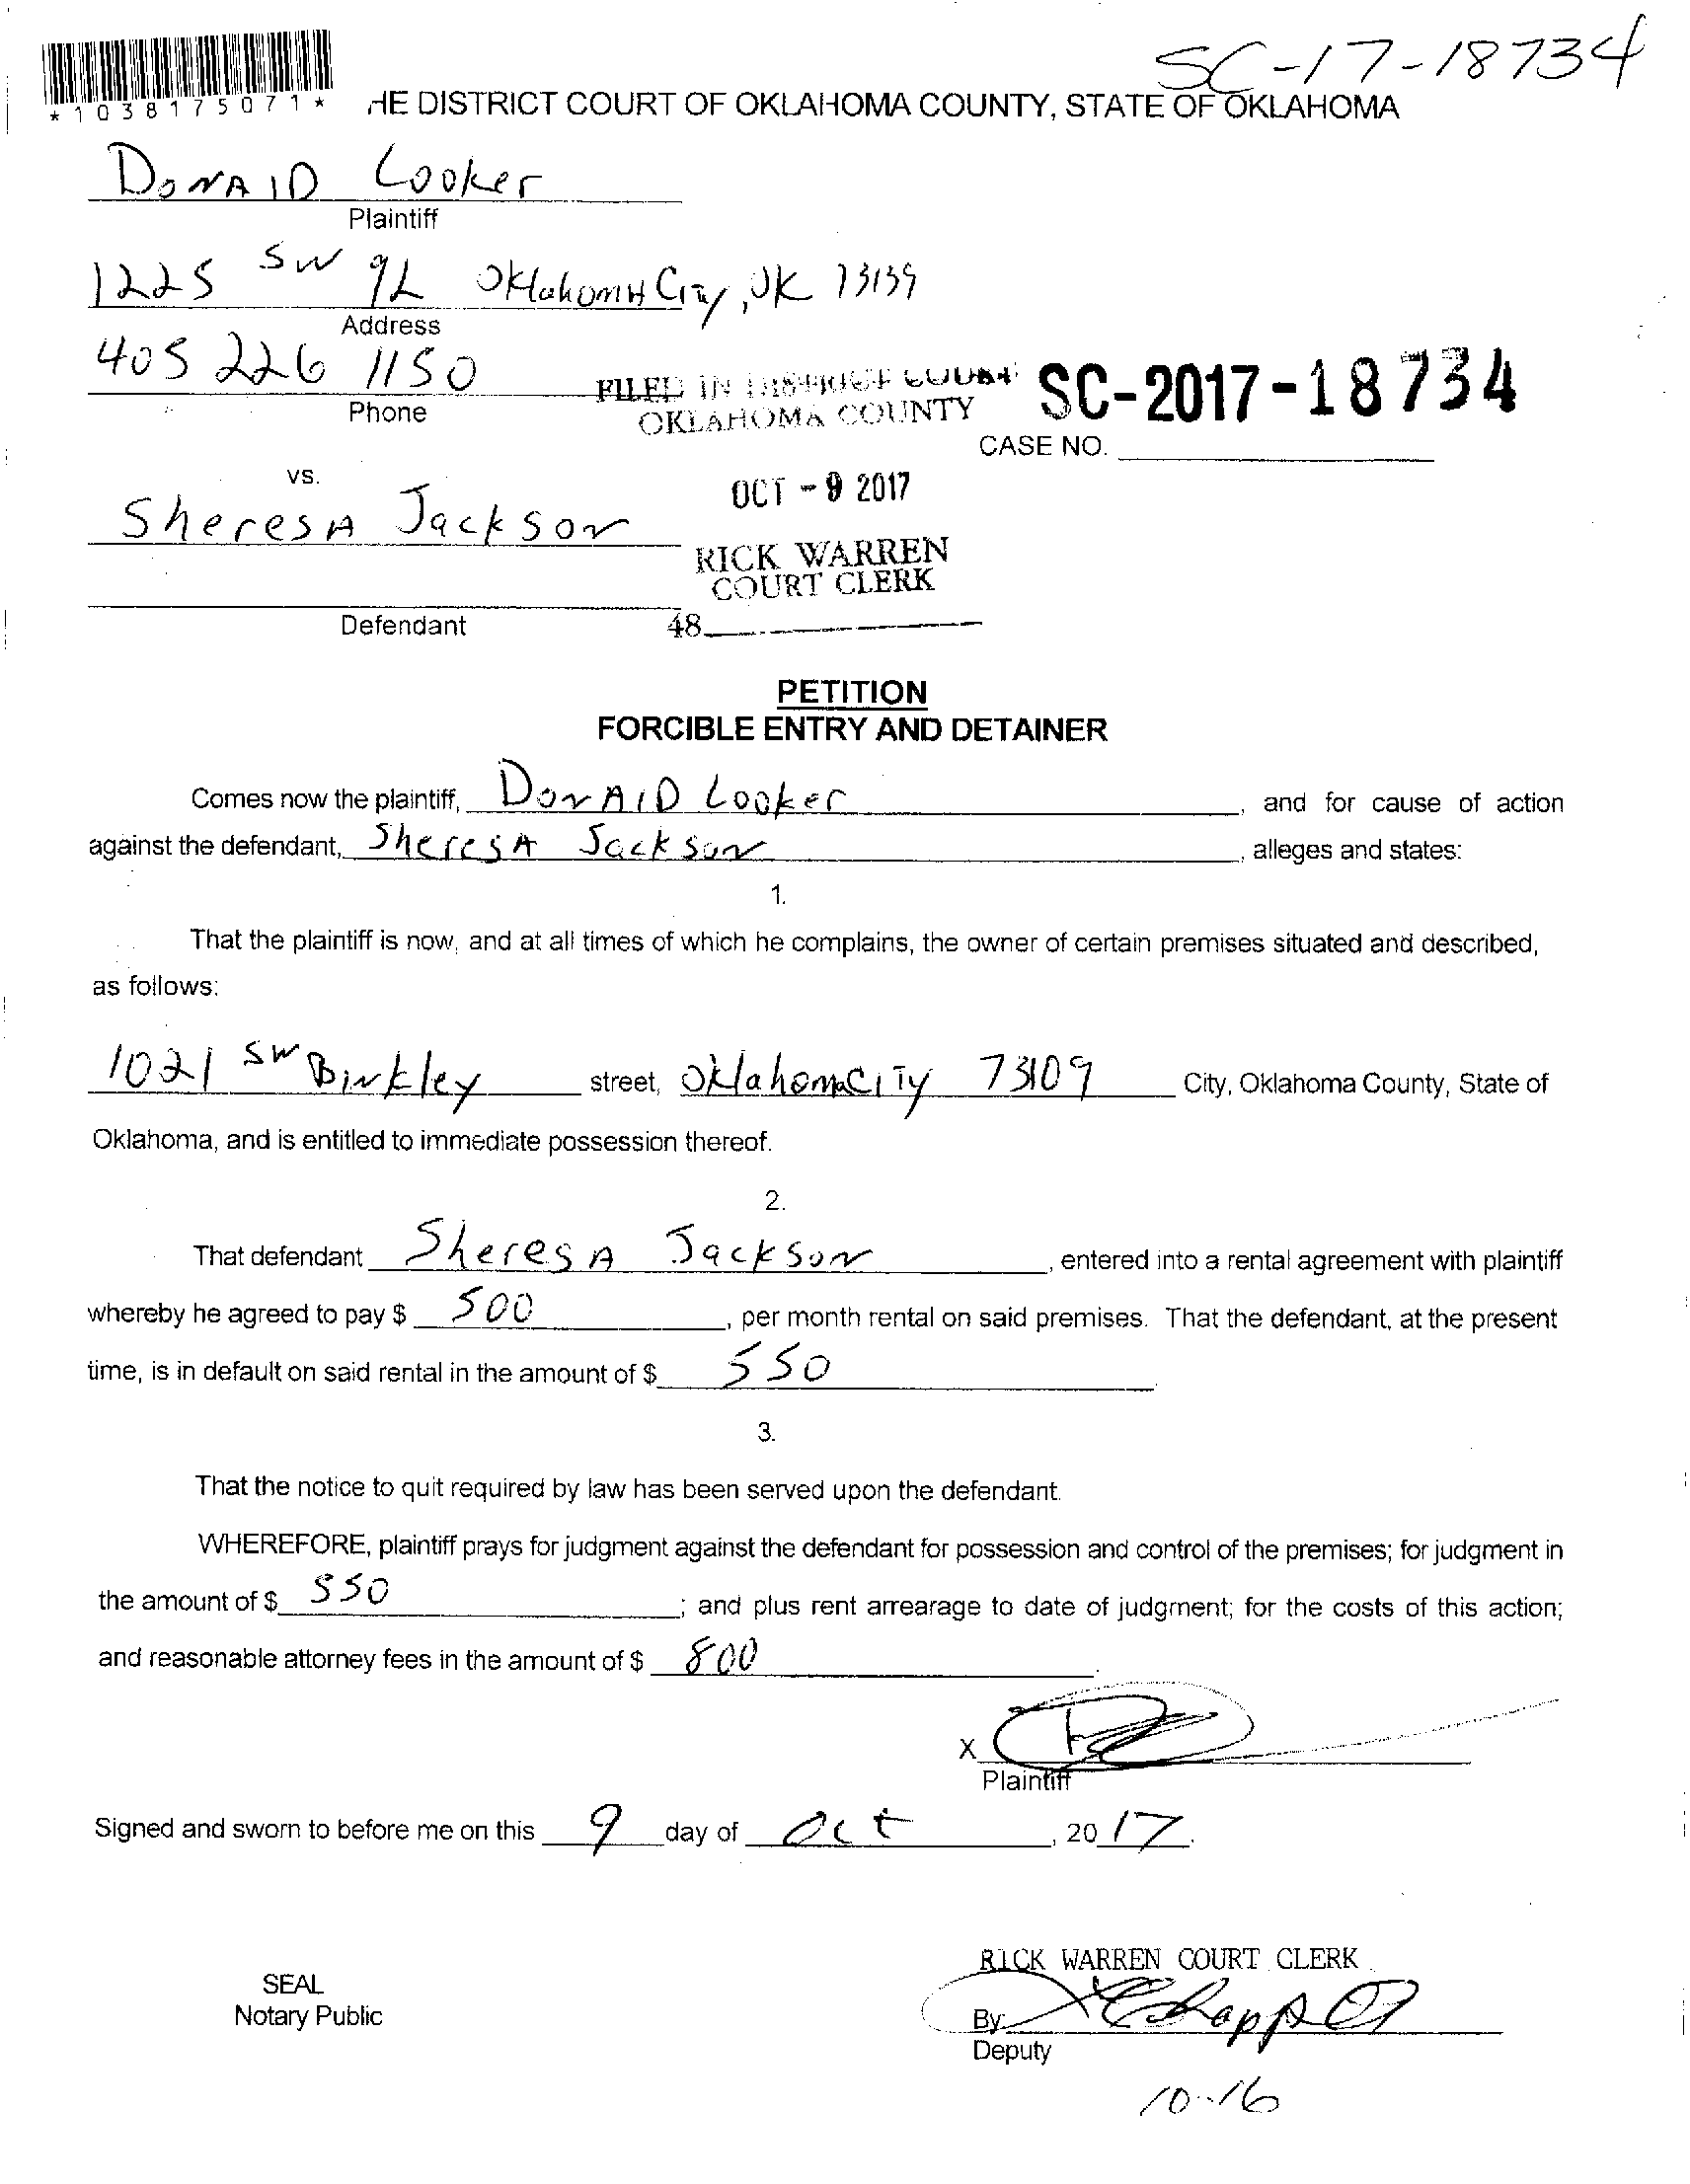 SC-17-18734
*1038175071*
HE DISTRICT COURT OF OKLAHOMA COUNTY, STATE OF OKLAHOMA
DONAlD Looker
Plaintiff
1225 SW 92 OklahomA City, OK 73139
Address
405 226 1150
Phone
FILED IN DISTRICT COURT
OKLAHOMA COUNTY
SC-2017-18734
CASE NO.
vs.
OCT - 9 2017
SheresA Jackson
RICK WARREN
COURT CLERK
Defendant
48
PETITION
FORCIBLE ENTRY AND DETAINER
Comes now the plaintiff, DonAlD Looker, and for cause of action
against the defendant, SheresA Jackson, alleges and states:
1.
That the plaintiff is now, and at all times of which he complains, the owner of certain premises situated and described,
as follows:
1021 SW Binkley street, OklahomaCity 73109 City, Oklahoma County, State of
Oklahoma, and is entitled to immediate possession thereof.
2.
That defendant SheresA Jackson, entered into a rental agreement with plaintiff
whereby he agreed to pay $ 500, per month rental on said premises. That the defendant, at the present
time, is in default on said rental in the amount of $ 550
3.
That the notice to quit required by law has been served upon the defendant.
WHEREFORE, plaintiff prays for judgment against the defendant for possession and control of the premises; for judgment in
the amount of $ 550; and plus rent arrearage to date of judgment; for the costs of this action;
and reasonable attorney fees in the amount of $ 800.
X
Plaintiff
Signed and sworn to before me on this 9 day of Oct, 2017.
RICK WARREN COURT CLERK
SEAL
Notary Public
By:
Deputy
10-16